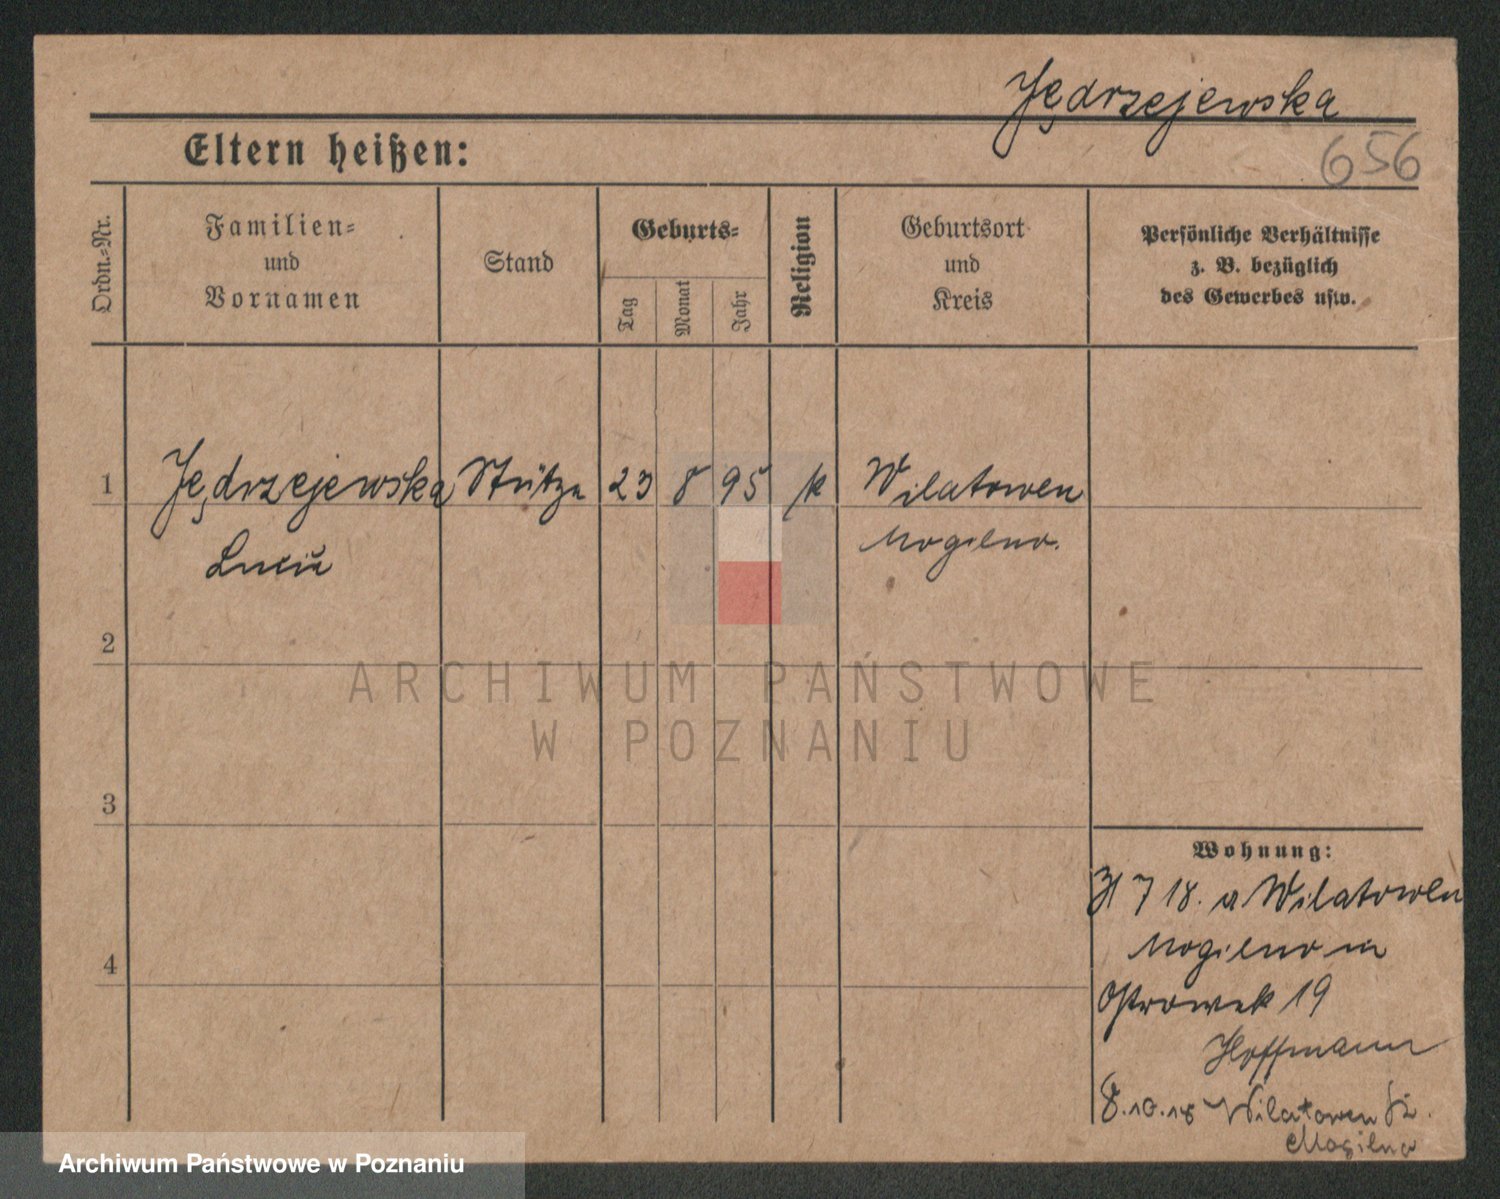 Jędrzejewska
656
Eltern heißen:
Ordn.=Nr.
Familien=
und
Vornamen
Stand
Geburts=
Tag
Monat
Jahr
Religion
Geburtsort
und
Kreis
Persönliche Verhältnisse
z. B. bezüglich
des Gewerbes usw.
1 Jędrzejewska Stütze 23 8 95 k Wilatowen
Mogilno.
2
ARCHIWUM PAŃSTWOWE
W POZNANIU
3
Wohnung:
7 18. a Wilatowen
4
Mogilno in
Ostrowek 19
Hoffmann
8.10.18 Wilatowen
Mogilno
Archiwum Państwowe w Poznaniu